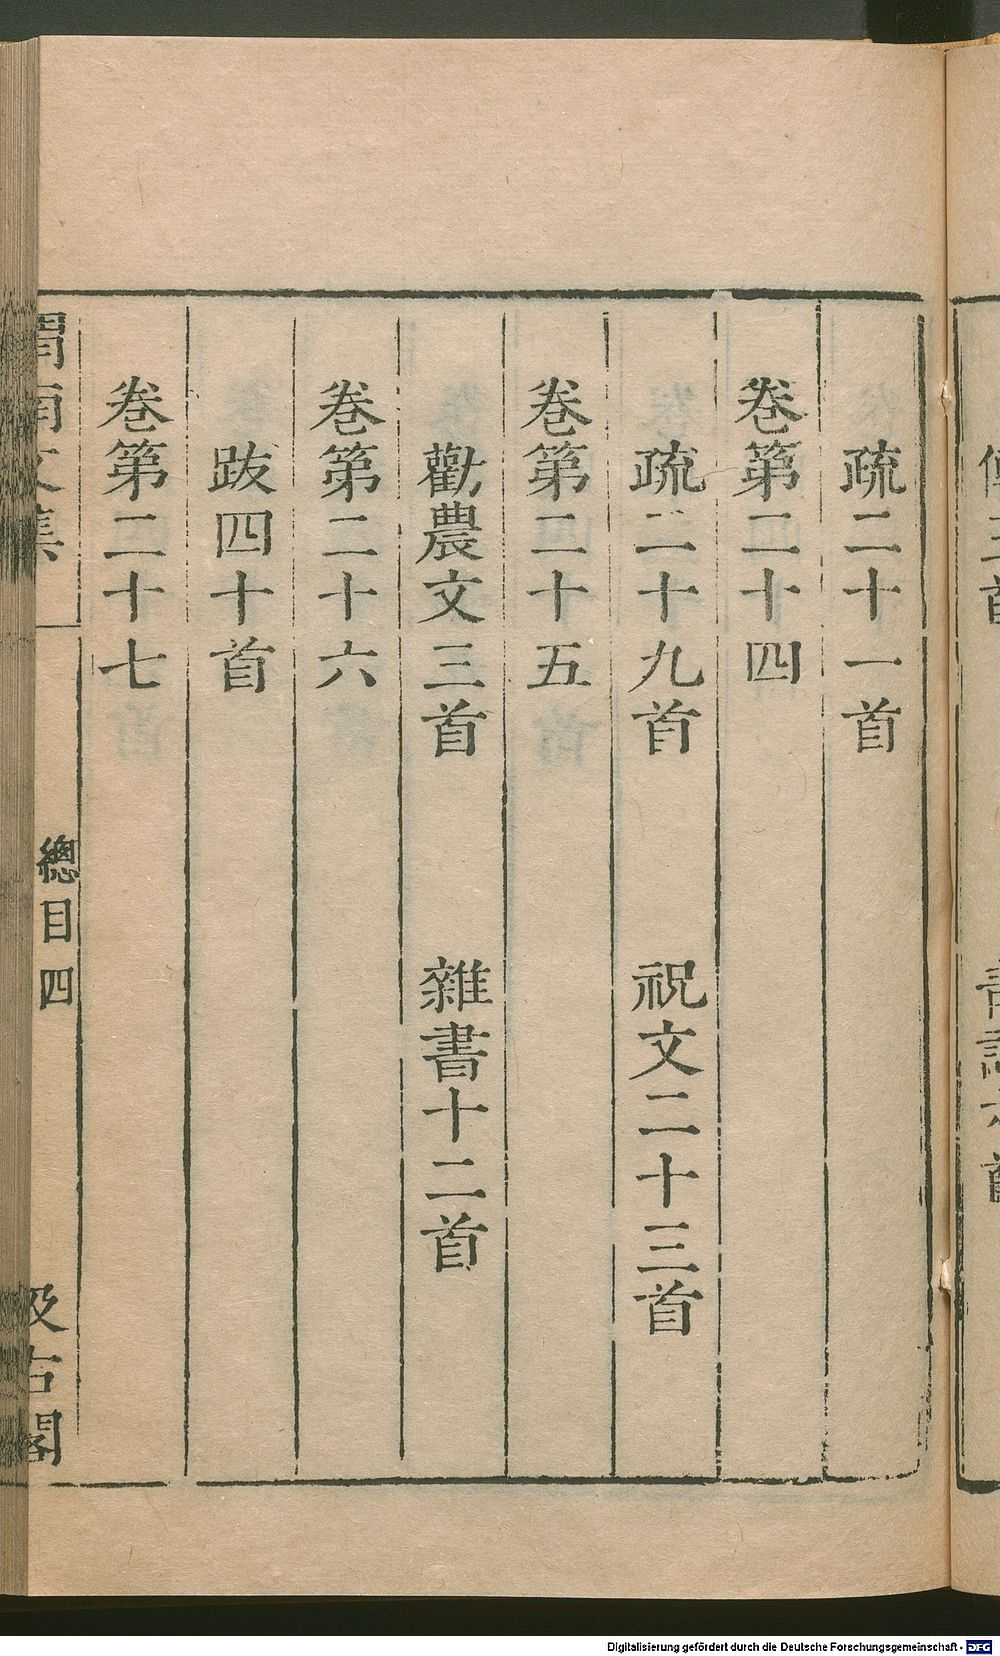 疏二十一首
卷第二十四
疏二十九首 祝文二十三首
卷第二十五
勸農文三首 雜書十二首
卷第二十六
跋四十首
卷第二十七
渭南文集 總目四 汲古閣
Digitalisierung gefördert durch die Deutsche Forschungsgemeinschaft - DFG